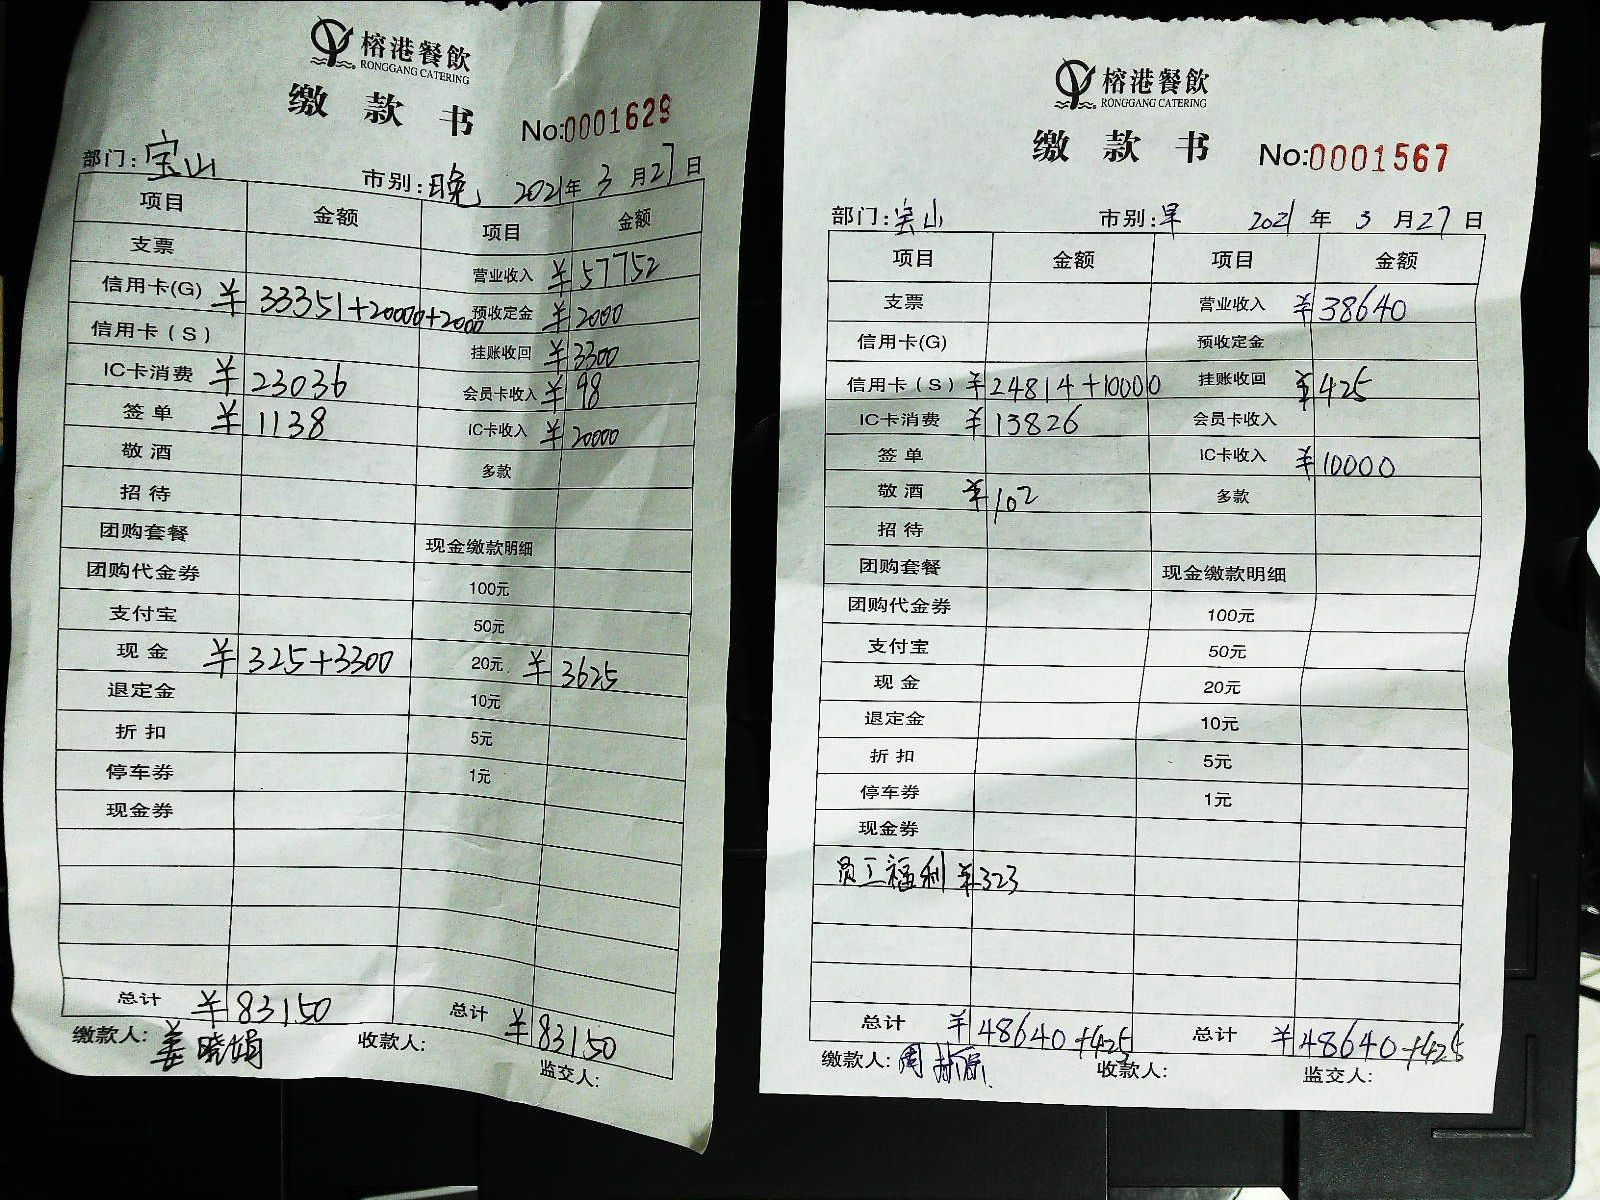 榕港餐飲
RONGGANG CATERING
缴款书 No:0001629
部门:宝山 市别:晚 2021年3月27日
项目 金额 项目 金额
支票 营业收入 ¥57752
信用卡(G) ¥33351+20000+2000 预收定金 ¥2000
信用卡(S) 挂账收回 ¥3300
IC卡消费 ¥23036 会员卡收入 ¥98
签单 ¥1138 IC卡收入 ¥20000
敬酒 多款
招待
团购套餐 现金缴款明细
团购代金券 100元
支付宝 50元
现金 ¥325+3300 20元 ¥3625
退定金 10元
折扣 5元
停车券 1元
现金券
总计 ¥83150 总计 ¥83150
缴款人:姜晓娟 收款人: 监交人:
榕港餐飲
RONGGANG CATERING
缴款书 No:0001567
部门:宝山 市别:早 2021年3月27日
项目 金额 项目 金额
支票 营业收入 ¥38640
信用卡(G) 预收定金
信用卡(S) ¥24814+10000 挂账收回 ¥425
IC卡消费 ¥13826 会员卡收入
签单 IC卡收入 ¥10000
敬酒 ¥102 多款
招待
团购套餐 现金缴款明细
团购代金券 100元
支付宝 50元
现金 20元
退定金 10元
折扣 5元
停车券 1元
现金券
员工福利 ¥323
总计 ¥48640+425 总计 ¥48640+425
缴款人:周 收款人: 监交人: